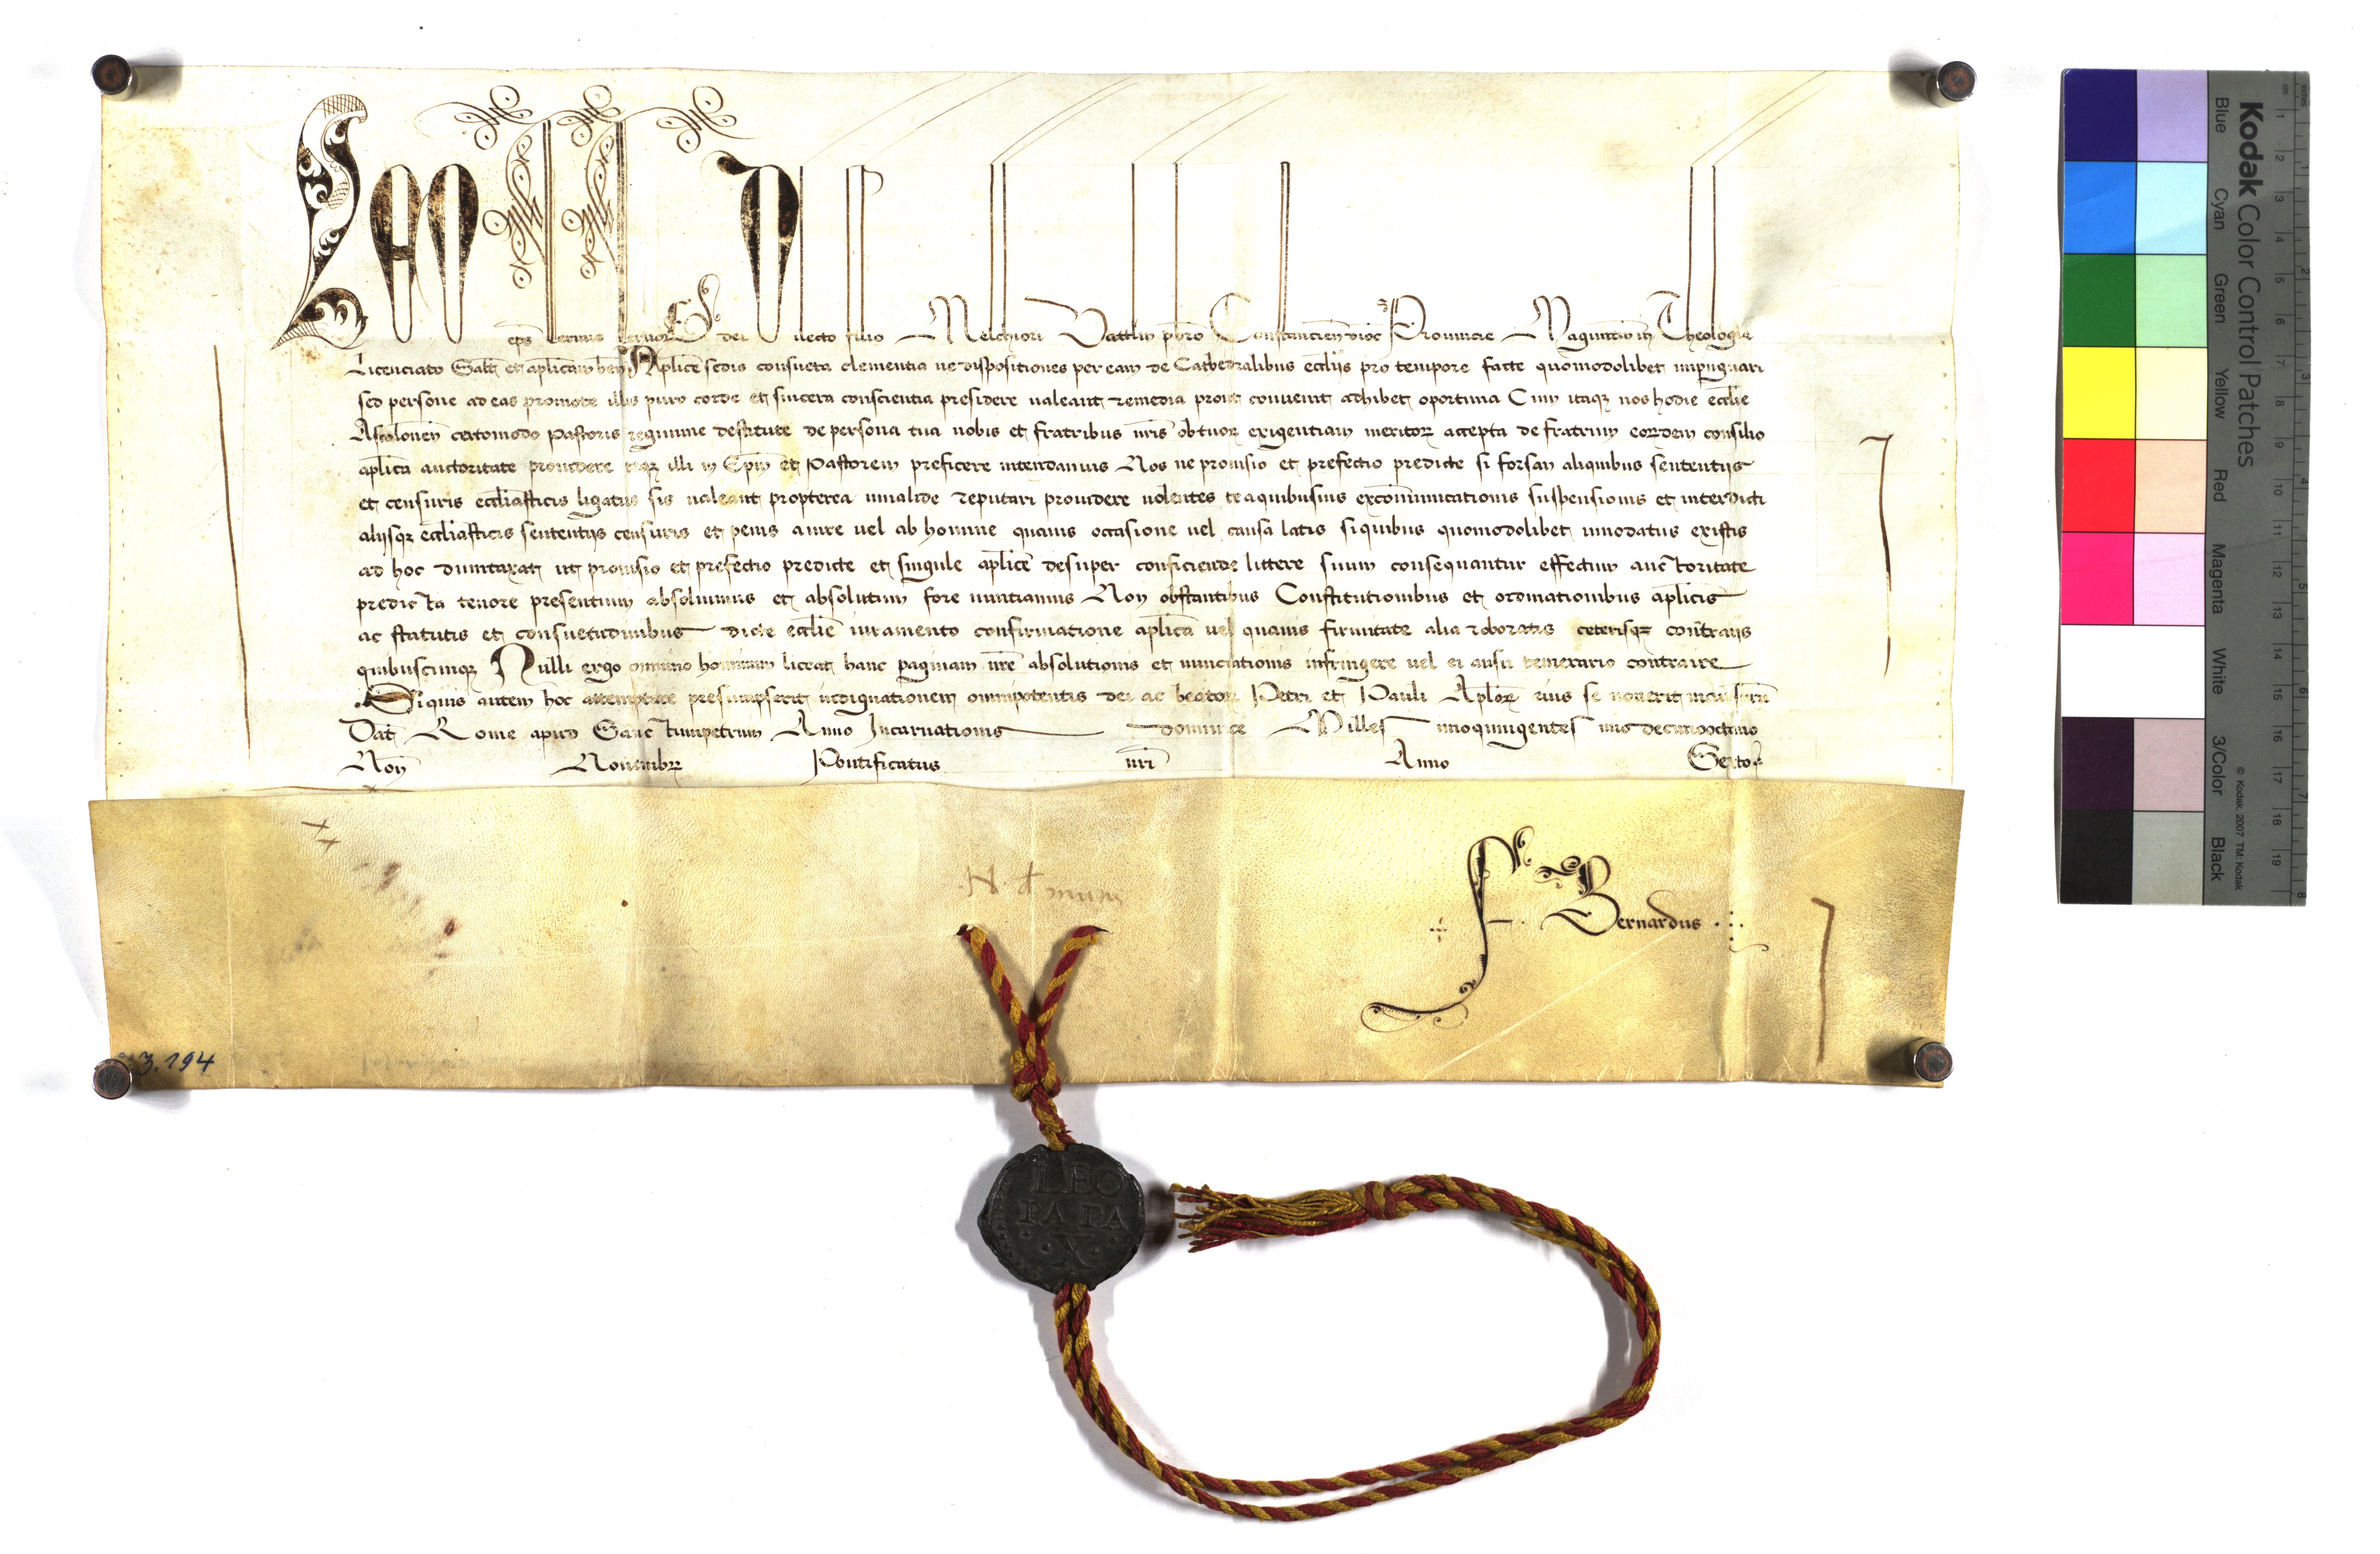 Leo eps seruus seruor dei Dilecto filio Melchiori Vattlin pbro Constancien dioc Prouincie Maguntin in Theologia
Licenciato Salt et aplicam ben Aplice sedis consueta clementia ne dispositiones per eam de Cathedralibus eccliis pro tempore facte quomodolibet impugnari
sed persone ad eas promote illis puro corde et sincera conscientia presidere ualeant remedia prout conuenit adhibet oportuna Cum itaq nos hodie ecclie
Ascalonen certomodo Pastoris regimine destitute de persona tua nobis et fratribus nris ob tuor exigentiam meritor accepta de fratrum eordem consilio
aplica auctoritate prouidere teq illi in Epm et Pastorem preficere intendamus Nos ne prouisio et prefectio predicte si forsan aliquibus sententiis
et censuris eccliasticis ligatus sis ualeant propterea inualide reputari prouidere uolentes te a quibusuis excommunicationis suspensionis et interdicti
aliisq eccliasticis sententiis censuris et penis a iure uel ab homine quauis occasione uel causa latis si quibus quomodolibet innodatus existis
ad hoc dumtaxat ut prouisio et prefectio predicte et singule aplice desuper conficiende littere suum consequantur effectum auctoritate
predicta tenore presentium absoluimus et absolutum fore nuntiamus Non obstantibus Constitutionibus et ordinationibus aplicis
ac statutis et consuetudinibus dicte ecclie iuramento confirmatione aplica uel quauis firmitate alia roboratis ceterisq contrariis
quibuscunq Nulli ergo omnino hominum liceat hanc paginam nre absolutionis et nunciationis infringere uel ei ausu temerario contraire
Siquis autem hoc attemptare presumpserit indignationem omnipotentis dei ac beator Petri et Pauli Aplor eius se nouerit incursurum
Dat Rome apud Sanctumpetrum Anno Incarnationis dominice Millesimoquingentesimodecimooctauo
Non Nouembr Pontificatus nri Anno Sexto
F. Bernardus
3.194
LEO
PA PA
X
Kodak Color Control Patches
Blue Cyan Green Yellow Red Magenta White 3/Color Black
© Kodak, 2007 TM: Kodak
inches 1 2 3 4 5 6 7 8
cm 1 2 3 4 5 6 7 8 9 10 11 12 13 14 15 16 17 18 19